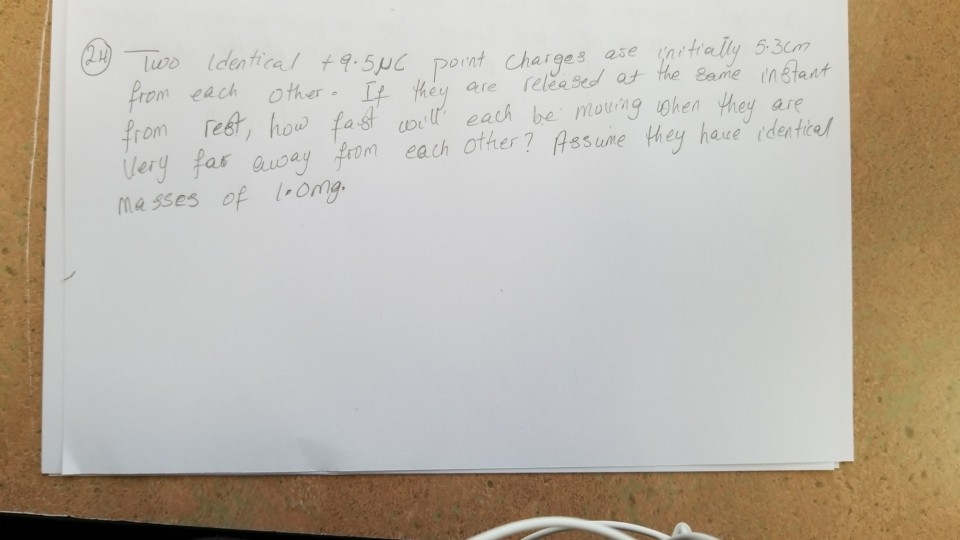 (24) Two Identical +9.5μC point charges are initially 5.3cm
from each other. If they are released at the same instant
from rest, how fast will each be moving when they are
very far away from each other? Assume they have identical
masses of 1.0mg.